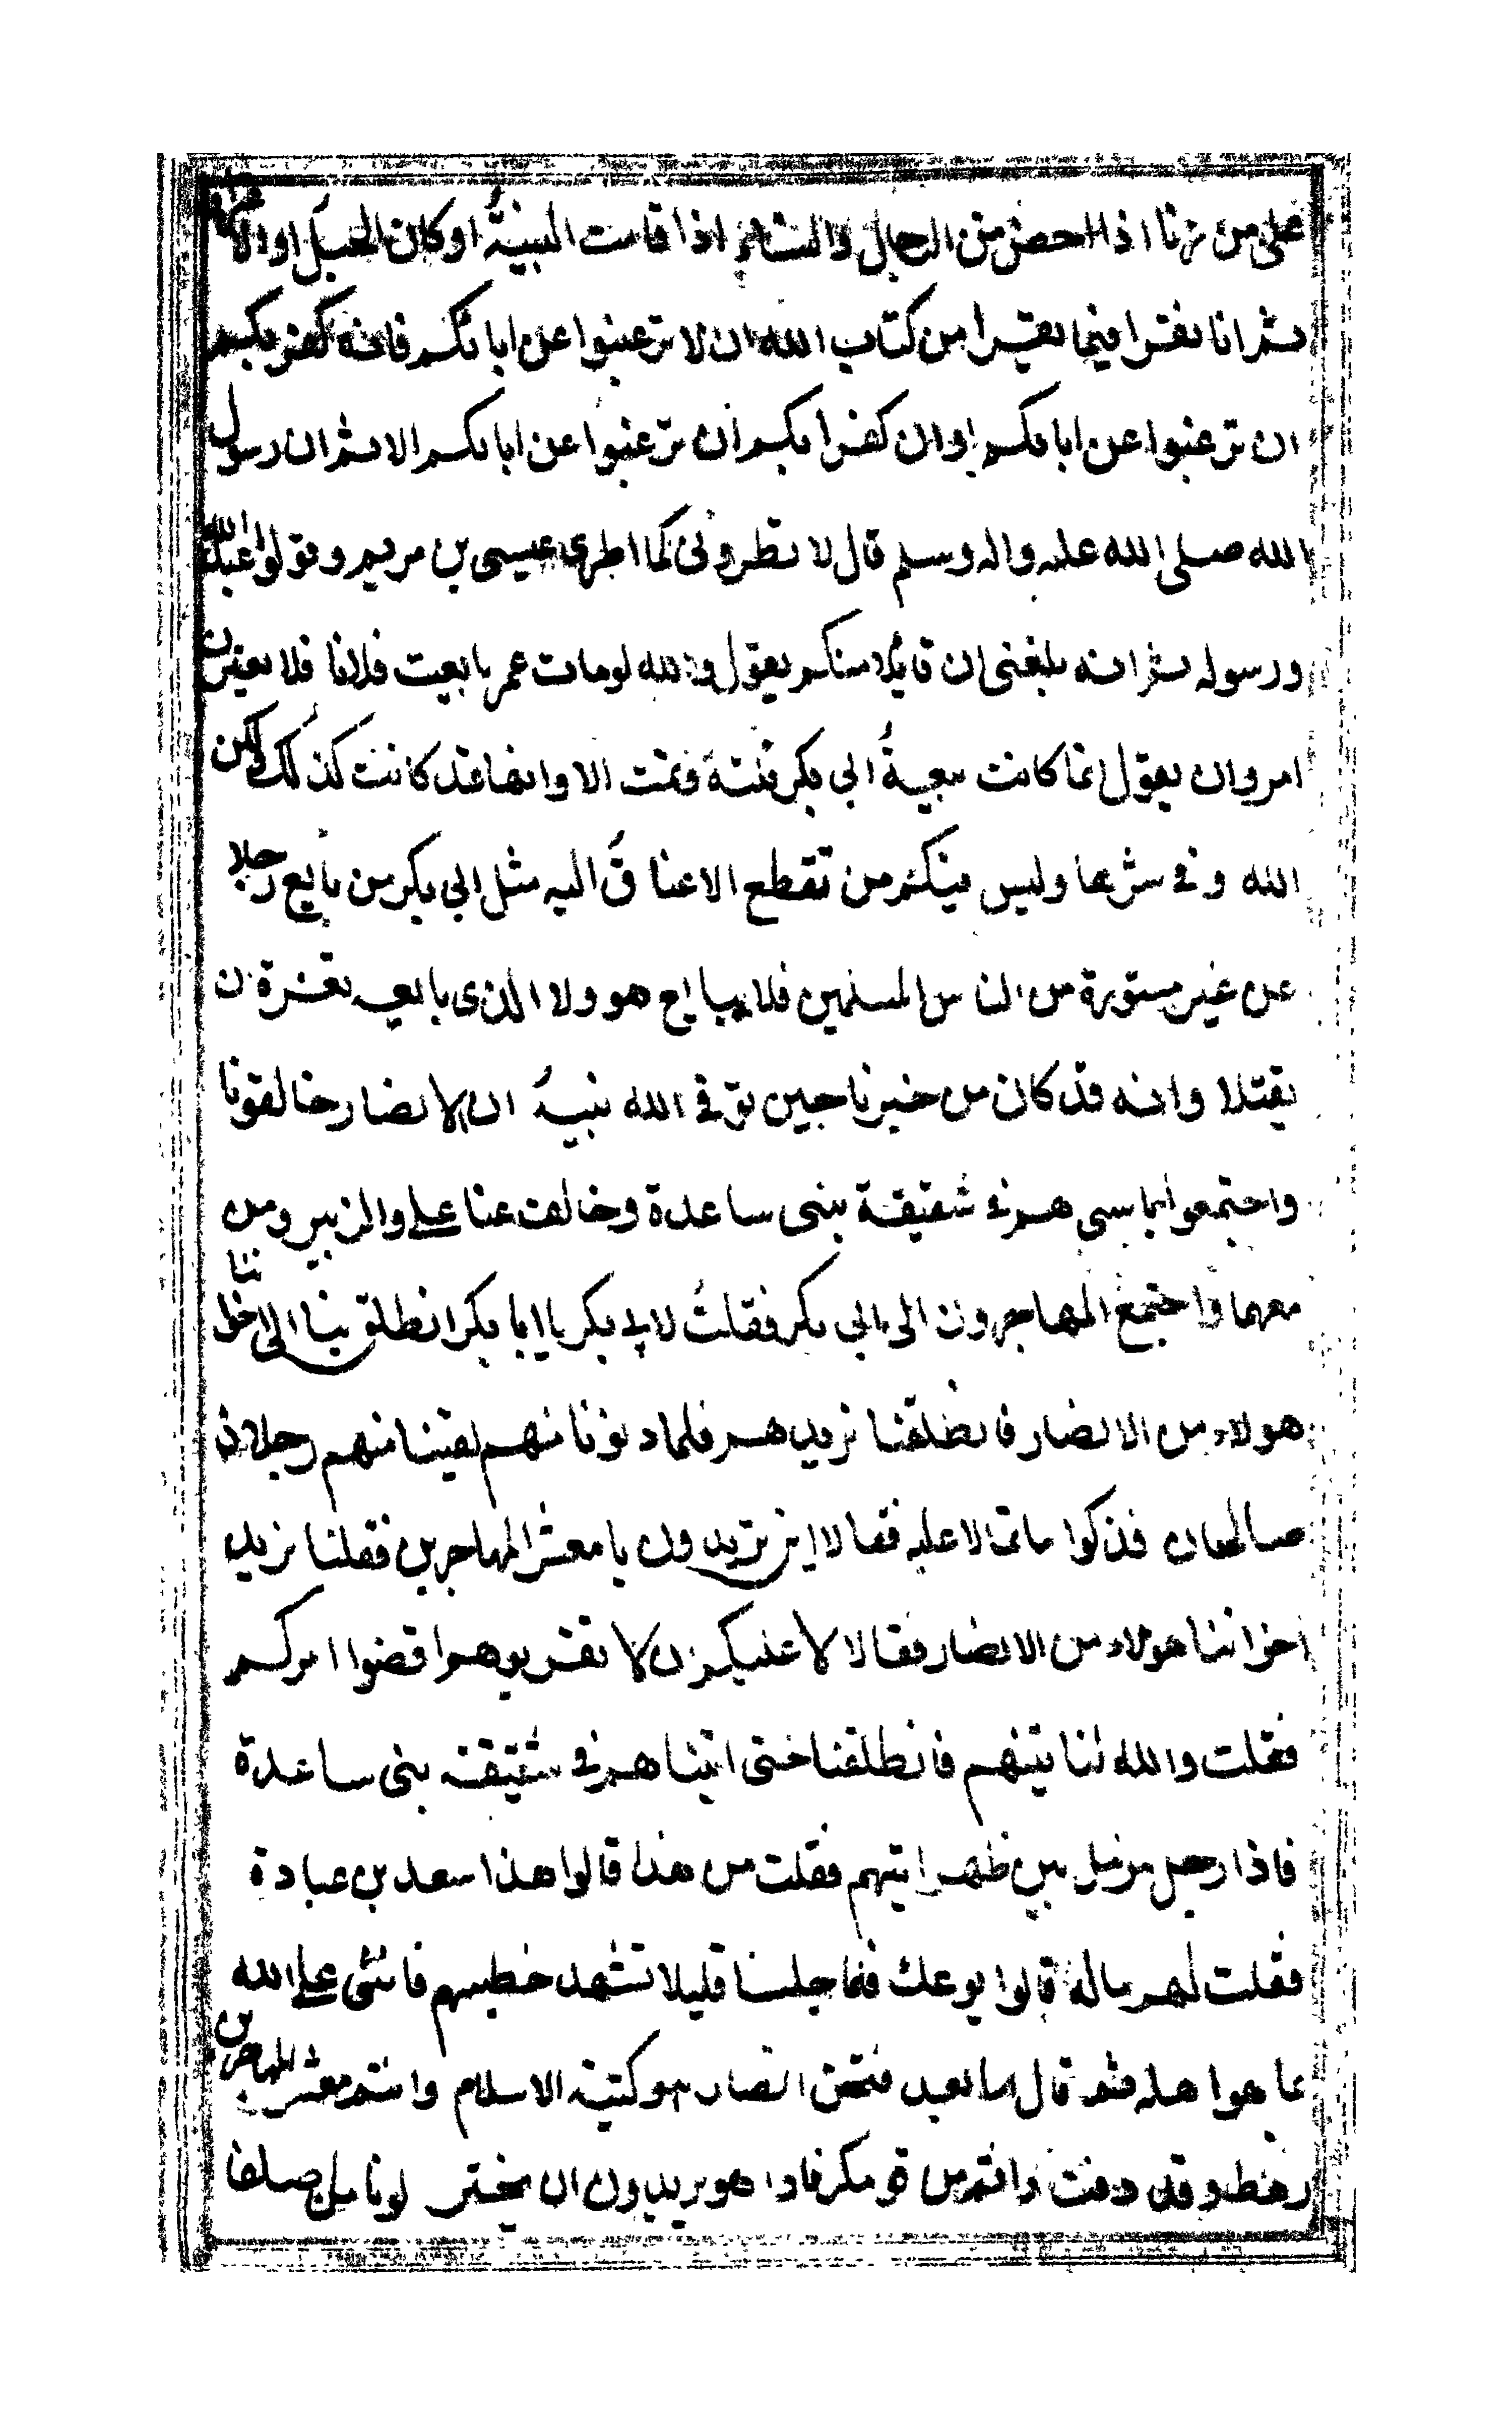 على من زنا اذا احصن من الرجال والنساء اذا قامت البينة او كان الحبل او الاعتراف
ثم انا نقرا فيما نقرا من كتاب الله ان لا ترغبوا عن ابائكم فانه كفر بكم
ان ترغبوا عن ابائكم او ان كفرا بكم ان ترغبوا عن ابائكم الا ثم ان رسول
الله صلى الله عليه واله وسلم قال لا تطروني كما اطرى عيسى بن مريم وقولوا عبد الله
ورسوله ثم انه بلغنى ان قايلا منكم يقول والله لو مات عمر بايعت فلانا فلا يغترن
امرؤ ان يقول انما كانت بيعةُ ابي بكر فلتة فتمت الا وانها قد كانت كذلك ولكن
الله وقى شرها وليس فيكم من تقطع الاعناق اليه مثل ابي بكر من بايع رجلا
عن غير مشورة من الناس المسلمين فلا يبايع هو ولا الذى بايعه تغرة ان
يقتلا وانه قد كان من خبرنا حين توفى الله نبيه ان الانصار خالفونا
واجتمعوا باسرهم فى سقيفة بنى ساعدة وخالف عنا على والزبير ومن
معهما واجتمع المهاجرون الى ابي بكر فقلتُ لابى بكر يا ابا بكر انطلق بنا الى اخواننا
هولاء من الانصار فانطلقنا نريدهم فلما دنونا منهم لقينا منهم رجلان
صالحان فذكرا ما تمالا عليه فقالا اين تريدون يا معشر المهاجرين فقلنا نريد
اخواننا هولاء من الانصار فقالا لا عليكم ان لا تقربوهم اقضوا امركم
فقلت والله لناتينهم فانطلقنا حتى اتيناهم فى سقيفة بنى ساعدة
فاذا رجل مزمل بين ظهرانيهم فقلت من هذا قالوا هذا سعد بن عبادة
فقلت لهم ماله قالوا يوعك فلما جلسنا قليلا تشهد خطيبهم فاثنى على الله
بما هو اهله ثم قال اما بعد فنحن انصار وكتيبة الاسلام وانتم معشر المهاجرين
رهط وقد دفت دافة من قومكم فاذا هو يريدون ان يختزلونا من اصلنا